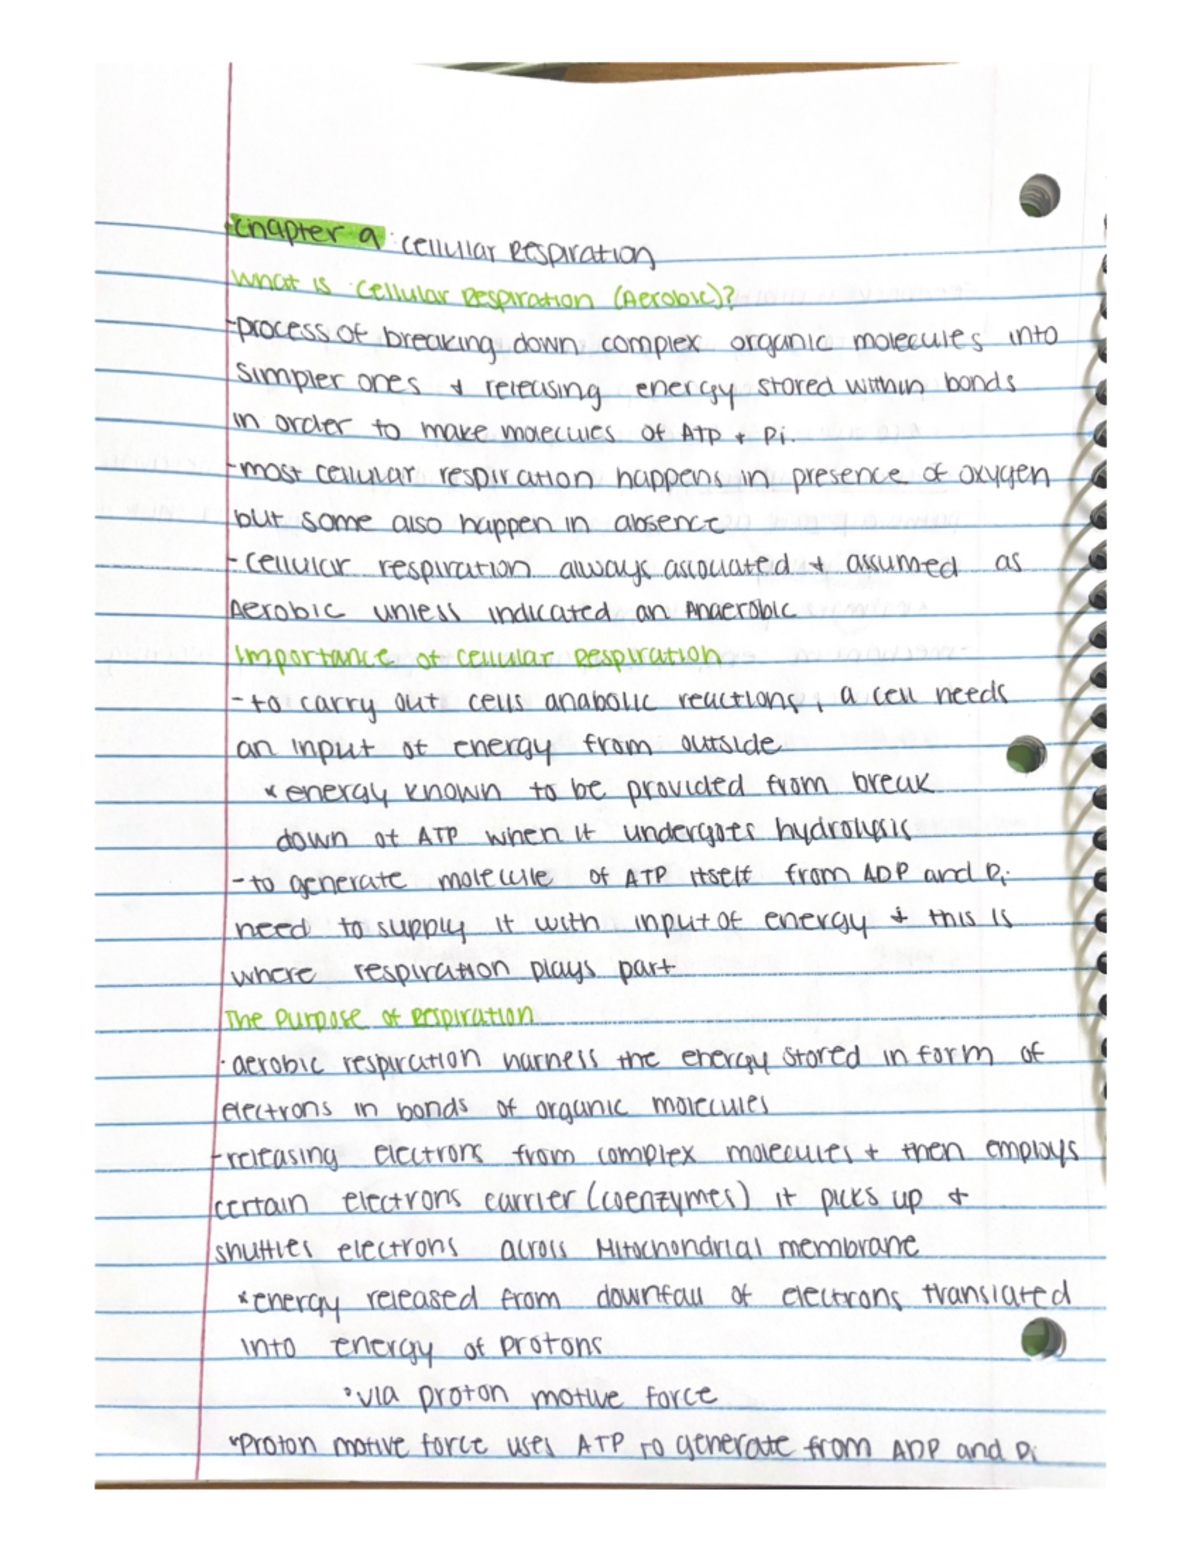 Chapter 9: Cellular Respiration
What is Cellular Respiration (Aerobic)?
-process of breaking down complex organic molecules into
simpler ones & releasing energy stored within bonds
in order to make molecules of ATP + Pi.
-most cellular respiration happens in presence of oxygen
but some also happen in absence
-cellular respiration always assouated & assumed as
Aerobic unless indicated an Anaerobic
Importance of Cellular Respiration
-to carry out cells anabolic reactions, a cell needs
an input of energy from outside
*energy known to be provided from break
down of ATP when it undergoes hydrolysis
-to generate molecule of ATP itself from ADP and Pi
need to supply it with input of energy & this is
where respiration plays part
The Purpose of Respiration
·aerobic respiration harness the energy stored in form of
electrons in bonds of organic molecules
-releasing electrons from complex molecules + then employs
certain electrons carrier (coenzymes) it picks up &
shuttles electrons across Mitochondrial membrane
*energy released from downfall of electrons translated
into energy of protons
°via proton motive force
*Proton motive force uses ATP to generate from ADP and Pi